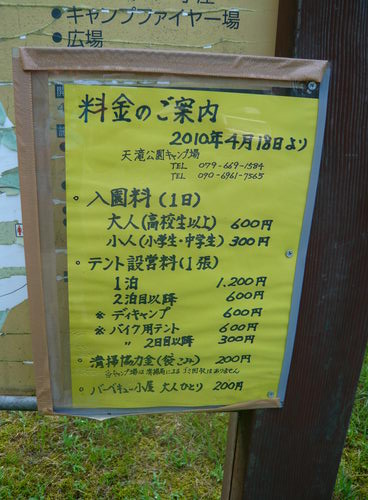 ・キャンプファイヤー場
・広場
料金のご案内
2010年4月18日より
天滝公園キャンプ場
TEL 079-669-1584
TEL 090-6961-7565
・入園料(1日)
大人(高校生以上) 600円
小人(小学生・中学生) 300円
・テント設営料(1張)
1泊 1,200円
2泊目以降 600円
※ディキャンプ 600円
※バイク用テント 600円
〃 2日目以降 300円
・清掃協力金(袋ごみ) 200円
※キャンプ場は清掃局によるゴミ回収はありません
・バーベキュー小屋 大人ひとり 200円